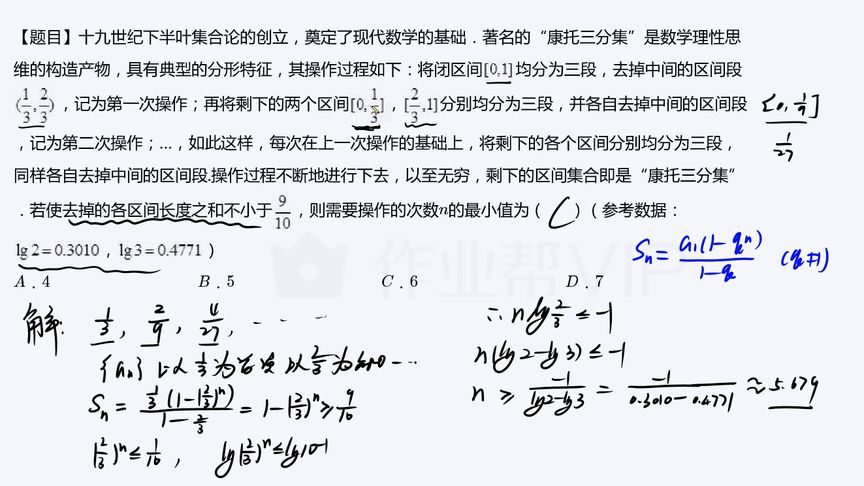 【题目】十九世纪下半叶集合论的创立，奠定了现代数学的基础．著名的“康托三分集”是数学理性思
维的构造产物，具有典型的分形特征，其操作过程如下：将闭区间[0,1]均分为三段，去掉中间的区间段
(1/3,2/3)，记为第一次操作；再将剩下的两个区间[0,1/3]，[2/3,1]分别均分为三段，并各自去掉中间的区间段
[0,1/9]
1/27
，记为第二次操作；…，如此这样，每次在上一次操作的基础上，将剩下的各个区间分别均分为三段，
同样各自去掉中间的区间段.操作过程不断地进行下去，以至无穷，剩下的区间集合即是“康托三分集”
．若使去掉的各区间长度之和不小于9/10，则需要操作的次数n的最小值为（ C ）（参考数据：
lg2=0.3010，lg3=0.4771）
Sn= a1(1-q^n)/(1-q) (q≠1)
A．4 B．5 C．6 D．7
作业帮VIP
解: 1/3, 2/9, 4/27, ……
{an} 以1/3为首项 以2/3为 ……
Sn = 1/3(1-(2/3)^n)/(1-2/3) = 1-(2/3)^n ≥ 9/10
(2/3)^n ≤ 1/10， lg(2/3)^n ≤ lg10^-1
∴ n lg 2/3 ≤ -1
n(lg2-lg3) ≤ -1
n ≥ -1/(lg2-lg3) = -1/(0.3010-0.4771) ≈ 5.679